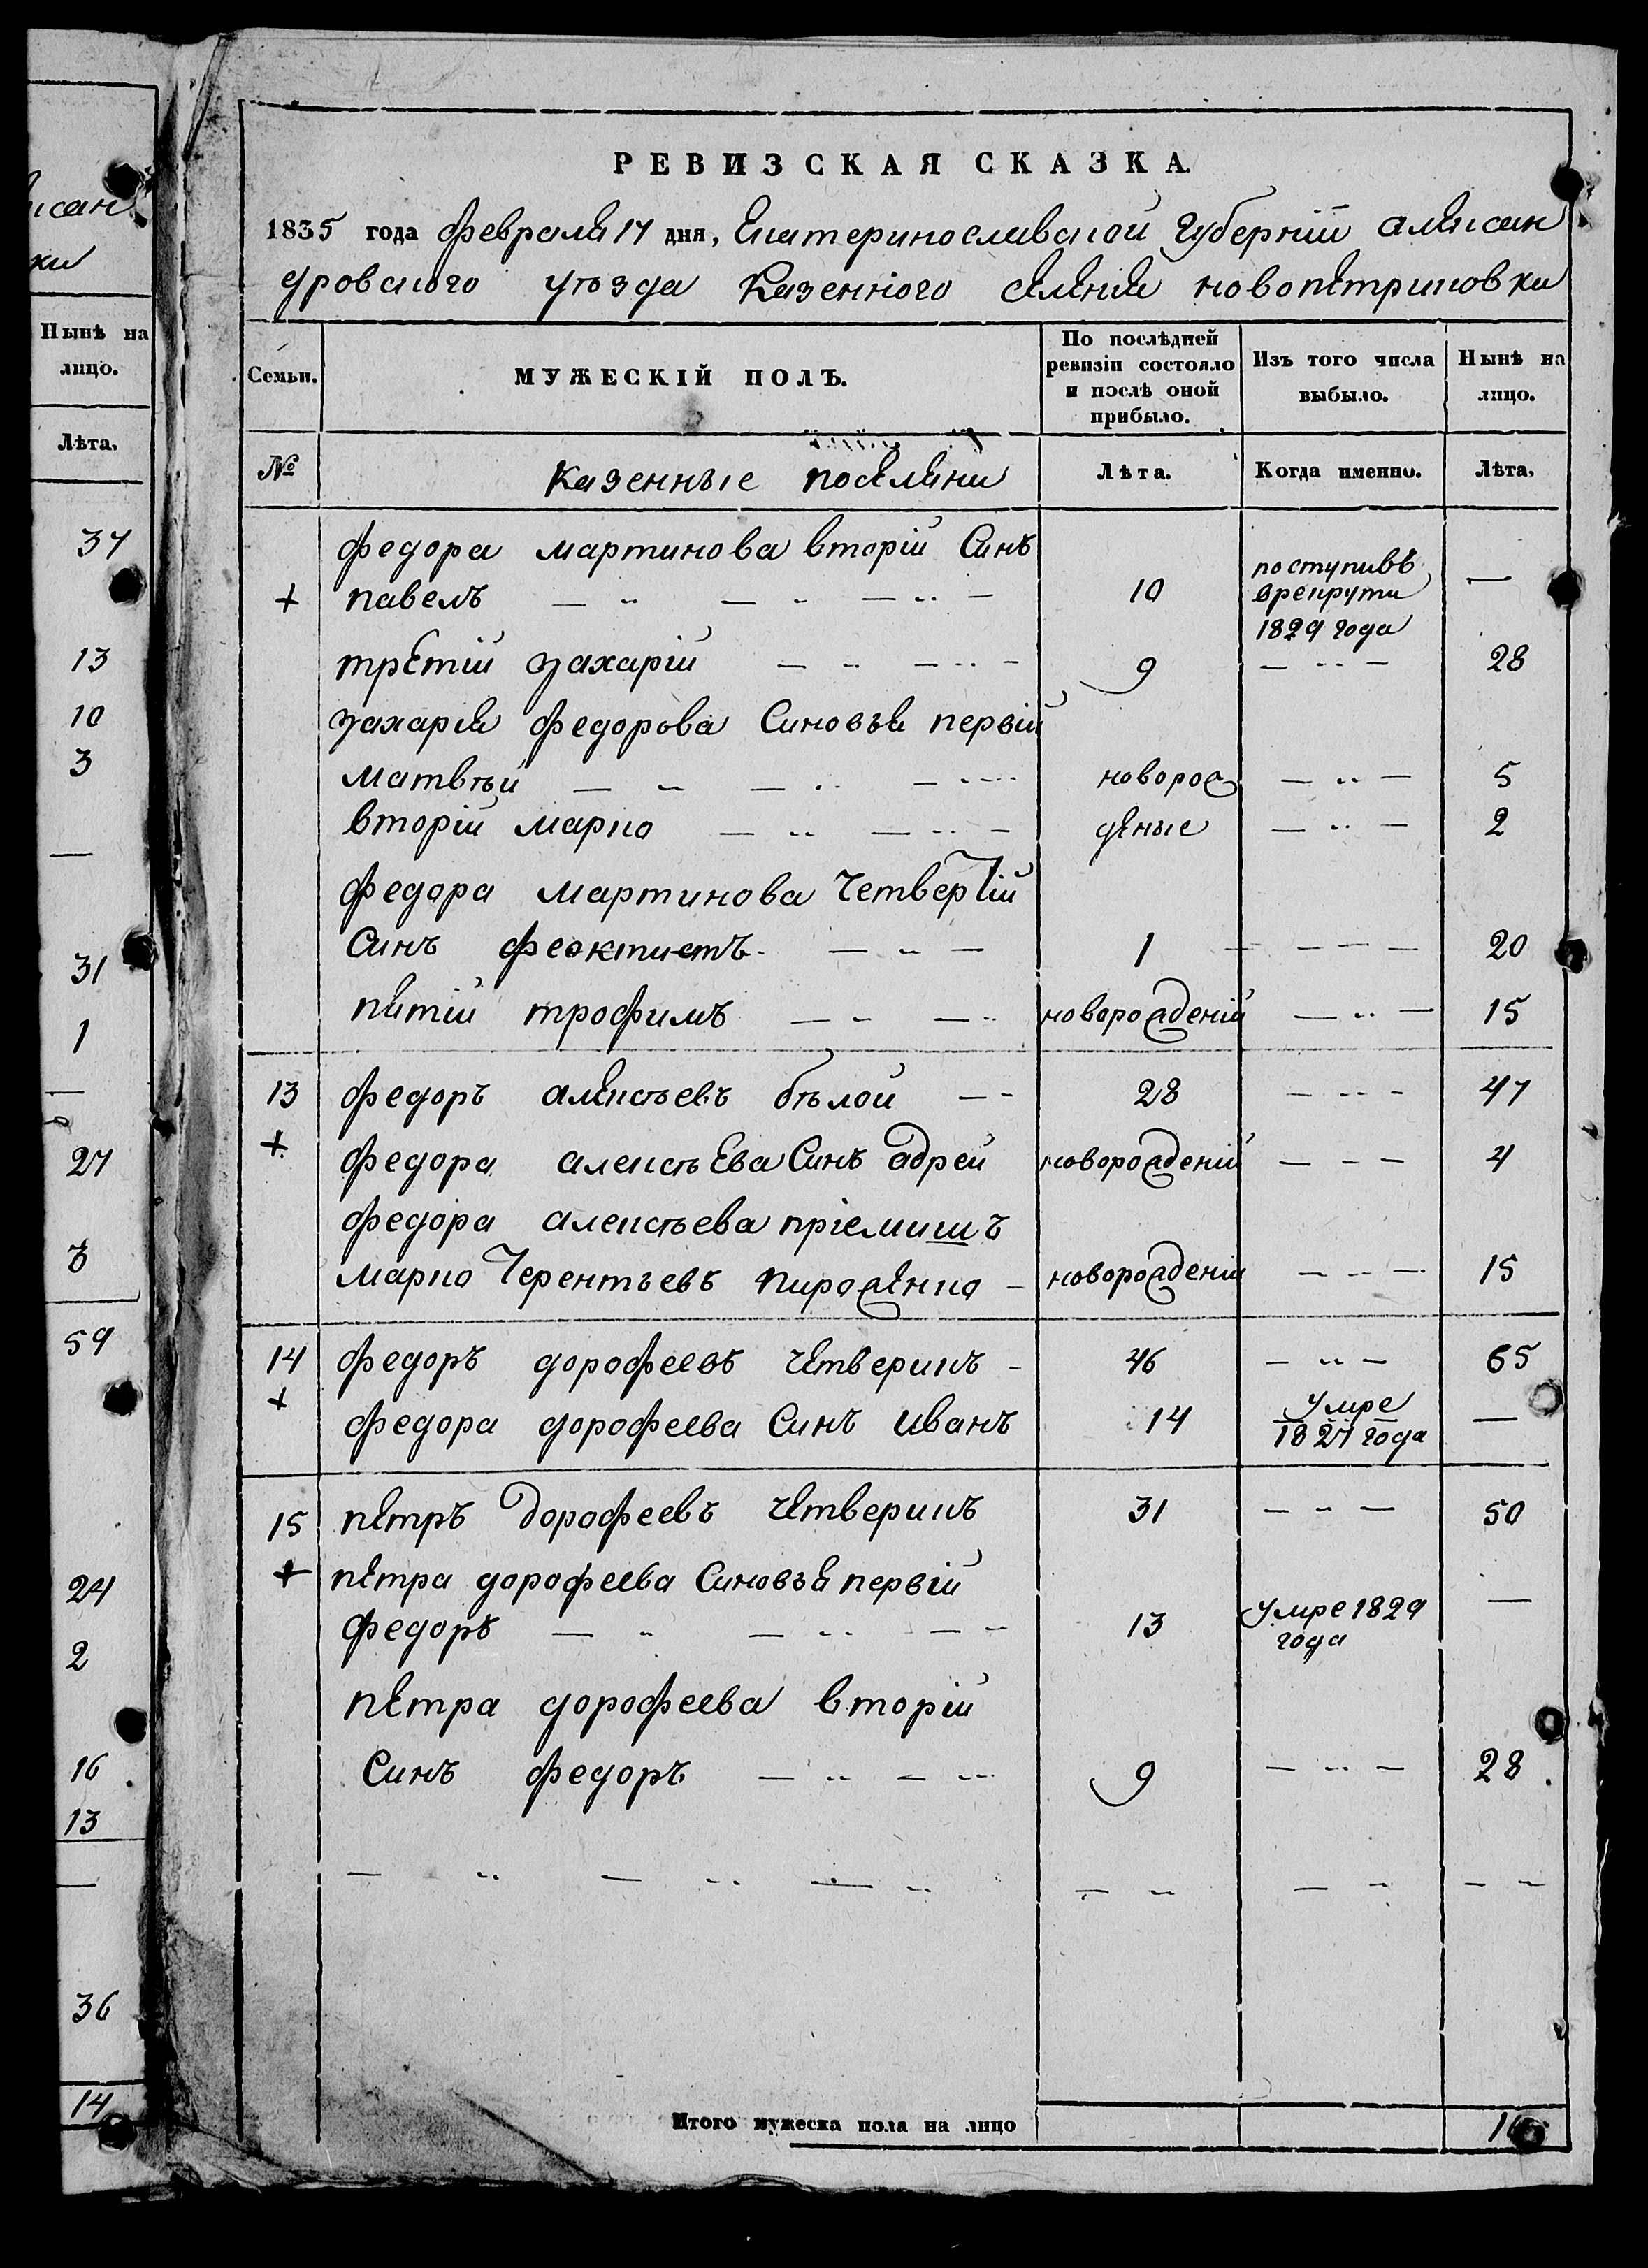 исан
ки
Нынѣ на
лицо.
Лѣта.
37
13
10
3
—
31
1
—
27
59
24
2
16
13
—
36
14
РЕВИЗСКАЯ СКАЗКА.
1835 года февраля 17 дня, Екатеринославской Губерніи Алексан
дровского уѣзда Казенного селенія новопетриковки
Семьи.
МУЖЕСКІЙ ПОЛЪ.
По послѣдней
ревизіи состояло
и послѣ оной
прибыло.
Изъ того числа
выбыло.
Нынѣ на
лицо.
№
Казенные поселяни
Лѣта.
Когда именно.
Лѣта.
федора мартинова вторій Синъ
+ павелъ — " — " — " — 10 поступивъ врекрути 1829 года —
третій захарій — " — " — 9 — " — 28
захарія федорова Синовья первій
матвѣй — " — " — " новорож — " — 5
вторій марко — " — " — деные — " — 2
федора мартинова Четвертій
Синъ феоктистъ — " — 1 — — — 20
пятій трофимъ — " — " новорожденій — " — 15
13 федоръ алексѣевъ бѣлой — - 28 — " — 47
+ федора алексѣева Синъ адрей новорожденій — - — 4
федора алексѣева пріемишъ
марко Терентьевъ пироженко — новорожденій — - — 15
14 федоръ дорофеевъ четверикъ - 46 — " — 65
+ федора дорофеева Синъ иванъ 14 умре 1827 года —
15 петръ дорофеевъ четверикъ 31 — " — 50
+ петра дорофеева Синовья первій
федоръ — " — " — - 13 умре 1829 года —
петра дорофеева вторій
Синъ федоръ — " — " 9 — " — 28
— " — " — " — - — " — -
Итого мужеска пола на лицо